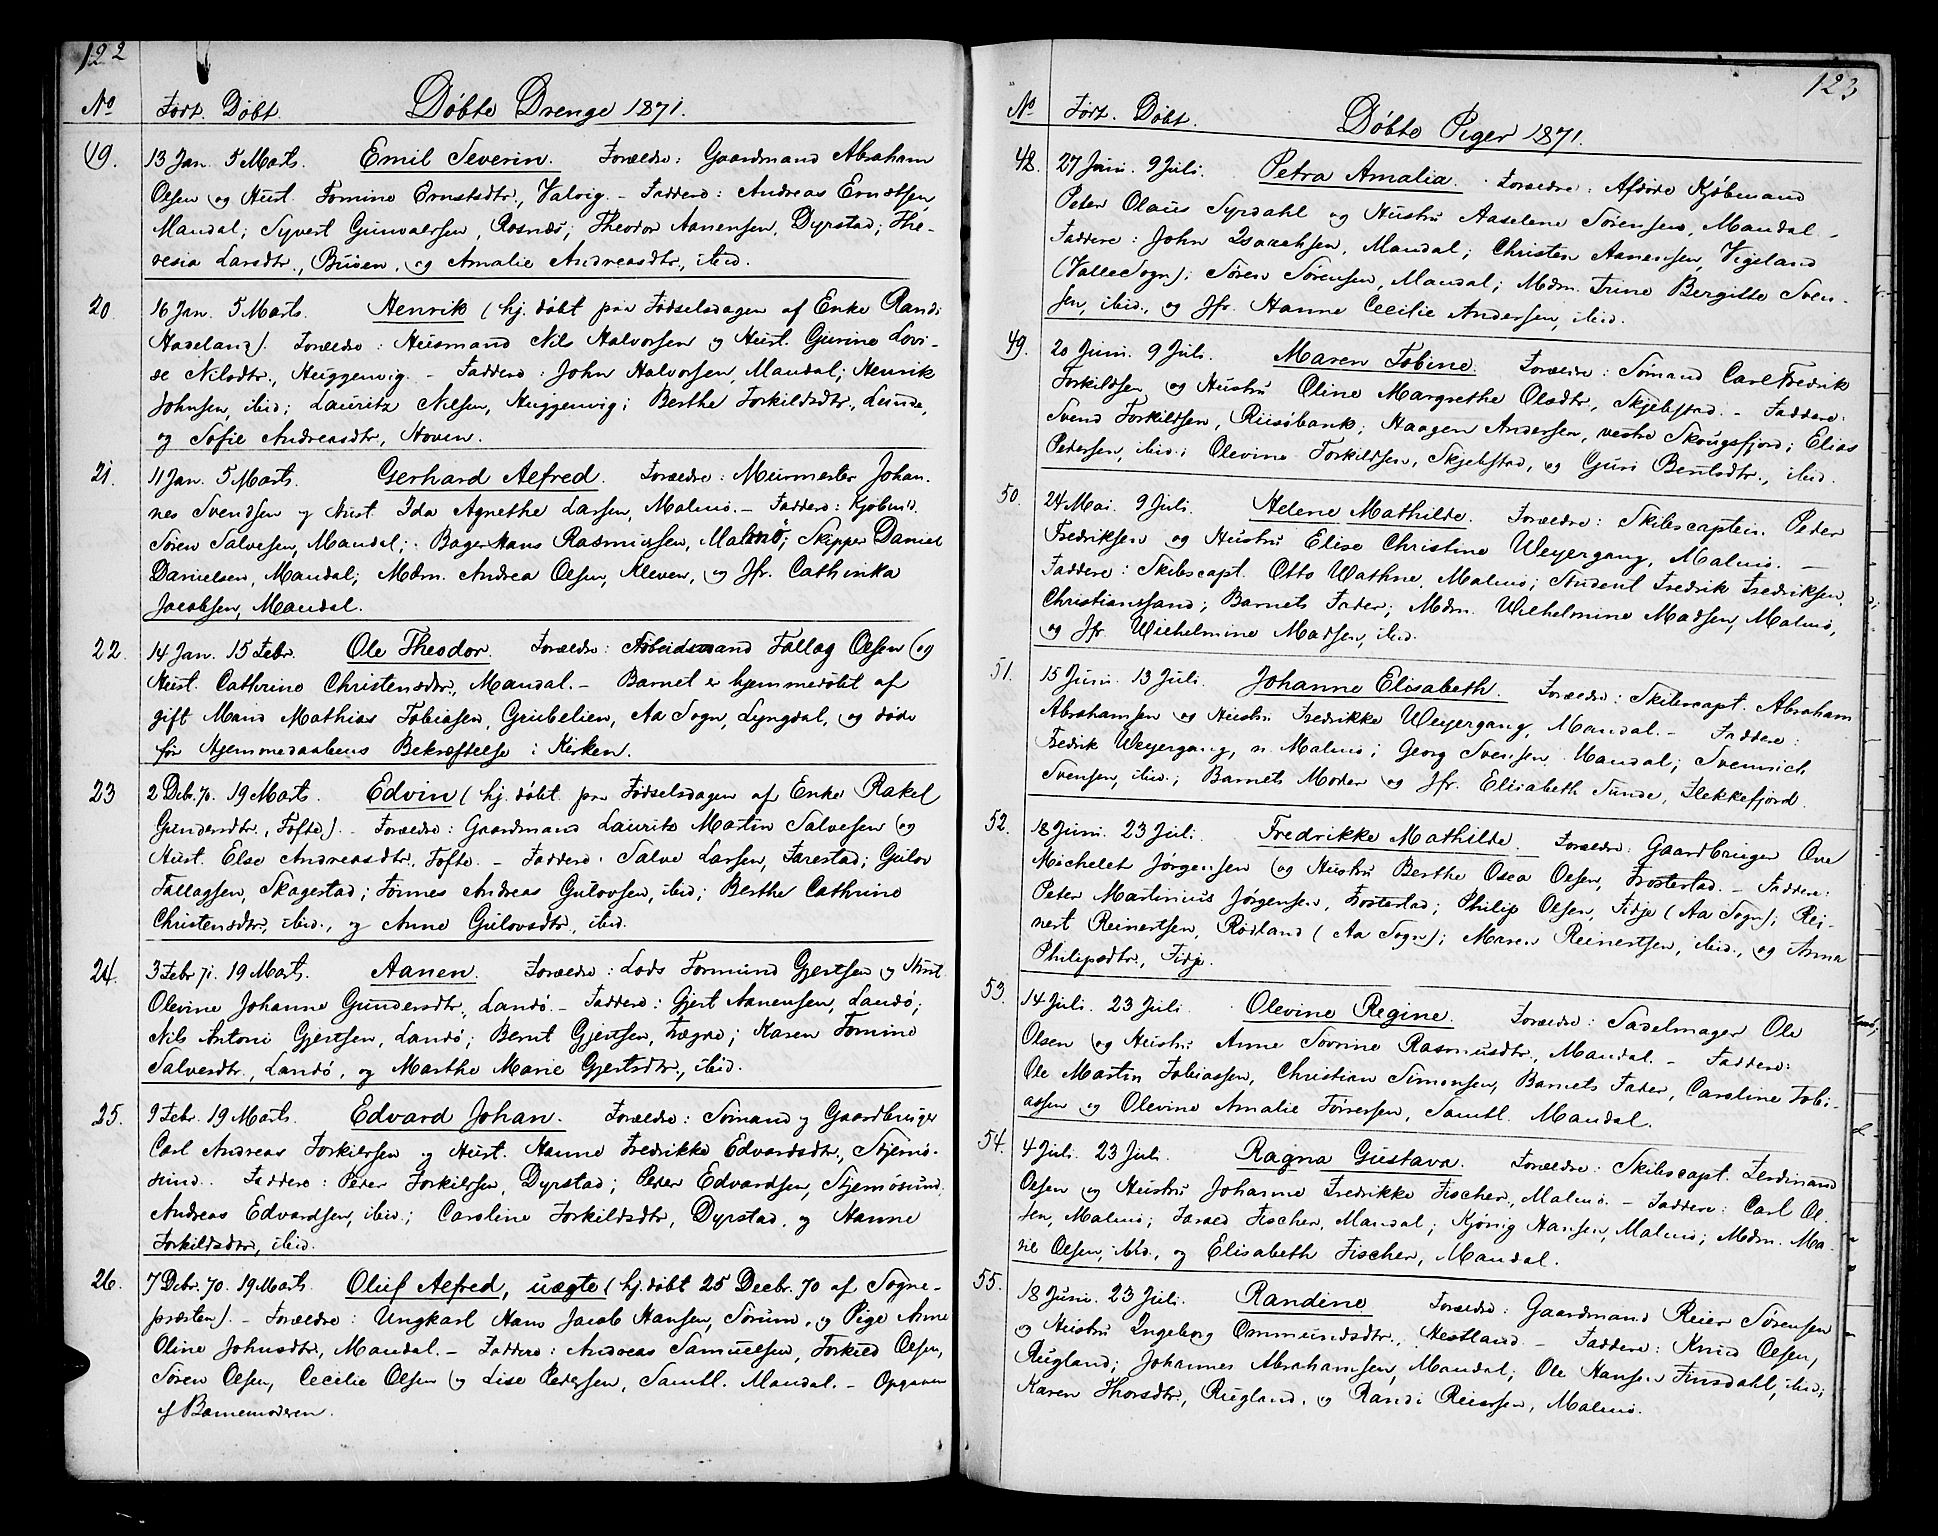 122
No Født. Døbt. Døbte Drenge 1871.
19. 13 Jan. 5 Marts. Emil Severin. Forældre: Gaardmand Abraham
Olsen og Hust. Tomine Ernstsdtr., Valvig. - Faddere: Andreas Erndtsen,
Mandal; Syvert Gunvaldsen, Rosnæs; Theodor Aanensen, Dyrstad; The-
resia Larsdtr., Buøen, og Amalie Andreasdtr., ibid.
20. 16 Jan. 5 Marts. Henrik (hj. døbt paa Fødselsdagen af Enke Randi
Haaeland). Forældre: Huusmand Nils Halvorsen og Hust. Gurine Lovi-
se Nilsdtr., Huggenvig. - Faddere: John Halvorsen, Mandal; Henrik
Johnsen, ibid; Lauritz Nilsen, Huggenvig; Berthe Torkildsdtr., Lunde,
og Sofie Andreasdtr., Hoven.
21. 11 Jan. 5 Marts. Gerhard Alfred. Forældre: Murmester Johan-
nes Svendsen og Hust. Ida Agnethe Larsen, Malmø. - Faddere: Kjøbmd.
Søren Salvesen, Mandal; Bager Hans Rasmussen, Malmø; Skipper Daniel
Danielsen, Mandal; Mdm. Andrea Olsen, Kleven, og Jfr. Cathinka
Jacobsen, Mandal.
22. 14 Jan. 15 Febr. Ole Theodor. Forældre: Arbeidsmand Tallag Olsen og
Hust. Cathrine Christensdtr., Mandal. - Barnet er hjemmedøbt af
gift Mand Mathias Tobiasen, Grubelien, Aa Sogn, Lyngdal, og døde
før Hjemmedaabens Bekræftelse i Kirken.
23 2 Dcbr. 70. 19 Marts. Edvin (hj. døbt paa Fødselsdagen af Enke Rakel
Gundersdtr., Tofte). - Forældre: Gaardmand Laurits Martin Salvesen og
Hust. Else Andreasdtr., Tofte. - Faddere: Salve Larsen, Farestad; Gulov
Tallagsen, Skagestad; Tønnes Andreas Gulovsen, ibid; Berthe Cathrine
Christensdtr., ibid., og Anne Gulovsdtr., ibid.
24. 3 Febr 71. 19 Marts. Aanen. Forældre: Lods Tormund Gjertsen og Hust
Olevine Johanne Gundersdtr., Landø. - Faddere: Gjert Aanensen, Landø;
Nils Antoni Gjertsen, Landø; Bernt Gjertsen, Tregde; Karen Tomine
Salvesdtr., Landø, og Marthe Marie Gjertsdtr., ibid.
25. 9 Febr. 19 Marts. Edvard Johan. Forældre: Sømand og Gaardbruger
Carl Andreas Torkildsen og Hust. Hanne Fredrikke Edvardsdtr., Stjernø-
sund. Faddere: Peder Torkildsen, Dyrstad; Peder Edvardsen, Stjernøsund;
Andreas Edvardsen, ibid.; Caroline Torkildsdtr., Dyrstad, og Hanne
Torkildsdtr., ibid.
26. 7 Dcbr. 70. 19 Marts. Oluf Alfred, uægte (hj. døbt 25 Decbr. 70 af Sogne-
præsten). - Forældre: Ungkarl Hans Jacob Hansen, Sørum, og Pige Anne
Oline Johnsdtr., Mandal. - Faddere: Andreas Samuelsen, Torkild Olsen,
Søren Olsen, Cecilie Olsen og Lise Pedersen, Samtl. Mandal. - Opgaven
af Barnemoderen.
123
No Født. Døbt. Døbte Piger 1871.
48. 27 Juni. 9 Juli. Petra Amalia. Forældre: Afdøde Kjøbmand
Peter Olaus Syrdahl og Hustru Aaselene Sørensen, Mandal. -
Faddere: John Isaachsen, Mandal; Christen Aanensen, Vigeland
(Valle Sogn); Søren Sørensen, Mandal; Mdm. Trine Bergitte Sven-
sen, ibid., og Jfr. Hanne Cecilie Andersen, ibid.
49. 20 Juni. 9 Juli. Maren Tobine. Forældre: Sømand Carl Fredrik
Torkildsen, og Hustru Oline Margrethe Olsdtr., Skjebstad. - Faddere:
Svend Torkildsen, Risøbank; Haagen Andersen, vestre Skougsfjord; Elias
Pedersen, ibid.; Olevine Torkildsen, Skjebstad, og Guri Bentsdtr., ibid.
50. 24 Mai. 9 Juli. Helene Mathilde. Forældre: Skibscaptein Peder
Fredriksen og Hustru Elise Christine Weyergang, Malmø. -
Faddere: Skibscapt. Otto Wathne, Malmø; Student Fredrik Fredriksen,
Christianssand; Barnets Fader; Mdm. Wilhelmine Madsen, Malmø,
og Jfr. Wilhelmine Madsen, ibid.
51. 15 Juni. 13 Juli. Johanne Elisabeth. Forældre: Skibscapt. Abraham
Abrahamsen og Hustru Fredrikke Weyergang, Mandal. - Faddere:
Fredrik Weyergang, n. Malmø; Georg Svensen Mandal; Svennich
Svensen, ibid.; Barnets Moder og Jfr. Elisabeth Sunde, Flekkefjord.
52. 18 Juni. 23 Juli. Fredrikke Mathilde. Forældre: Gaardbruger Ove
Michelet Jørgensen og Hustru Berthe Osea Olsen, Frosterstad. - Faddere:
Peter Martinius Jørgensen, Frosterstad; Philip Olsen, Fidje (Aa Sogn); Rei-
nert Reinertsen, Rødland (Aa Sogn); Maren Reinertsen, ibid., og Anna
Philipsdtr., Fidje.
53. 14 Juli. 23 Juli. Olevine Regine. Forældre: Sadelmager Ole
Olsen og Hustru Anne Sovrine Rasmusdtr., Mandal. - Faddere:
Ole Martin Tobiassen, Christian Simonsen, Barnets Fader, Caroline Tobi-
assen og Olevine Amalie Tørresen, Samtl. Mandal.
54. 4 Juli. 23 Juli. Ragna Gustava. Forældre: Skibscapt. Ferdinand
Olsen og Hustru Johanne Fredrikke Fischer, Malmø. - Faddere: Carl Ol-
sen, Malmø; Jared Fischer, Mandal; Kjønig Hansen, Malmø; Mdm. Ma-
rie Olsen, ibid., og Elisabeth Fischer, Mandal.
55. 18 Juni. 23 Juli. Randine Forældre: Gaardmand Reier Sørensen
og Hustru Ingeborg Ommundsdtr., Hestland. - Faddere: Knud Olsen,
Rugland; Johannes Abrahamsen, Mandal; Ole Hansen Finsdahl, ibid;
Karen Thorsdtr., Rugland, og Randi Reiersen, Malmø.